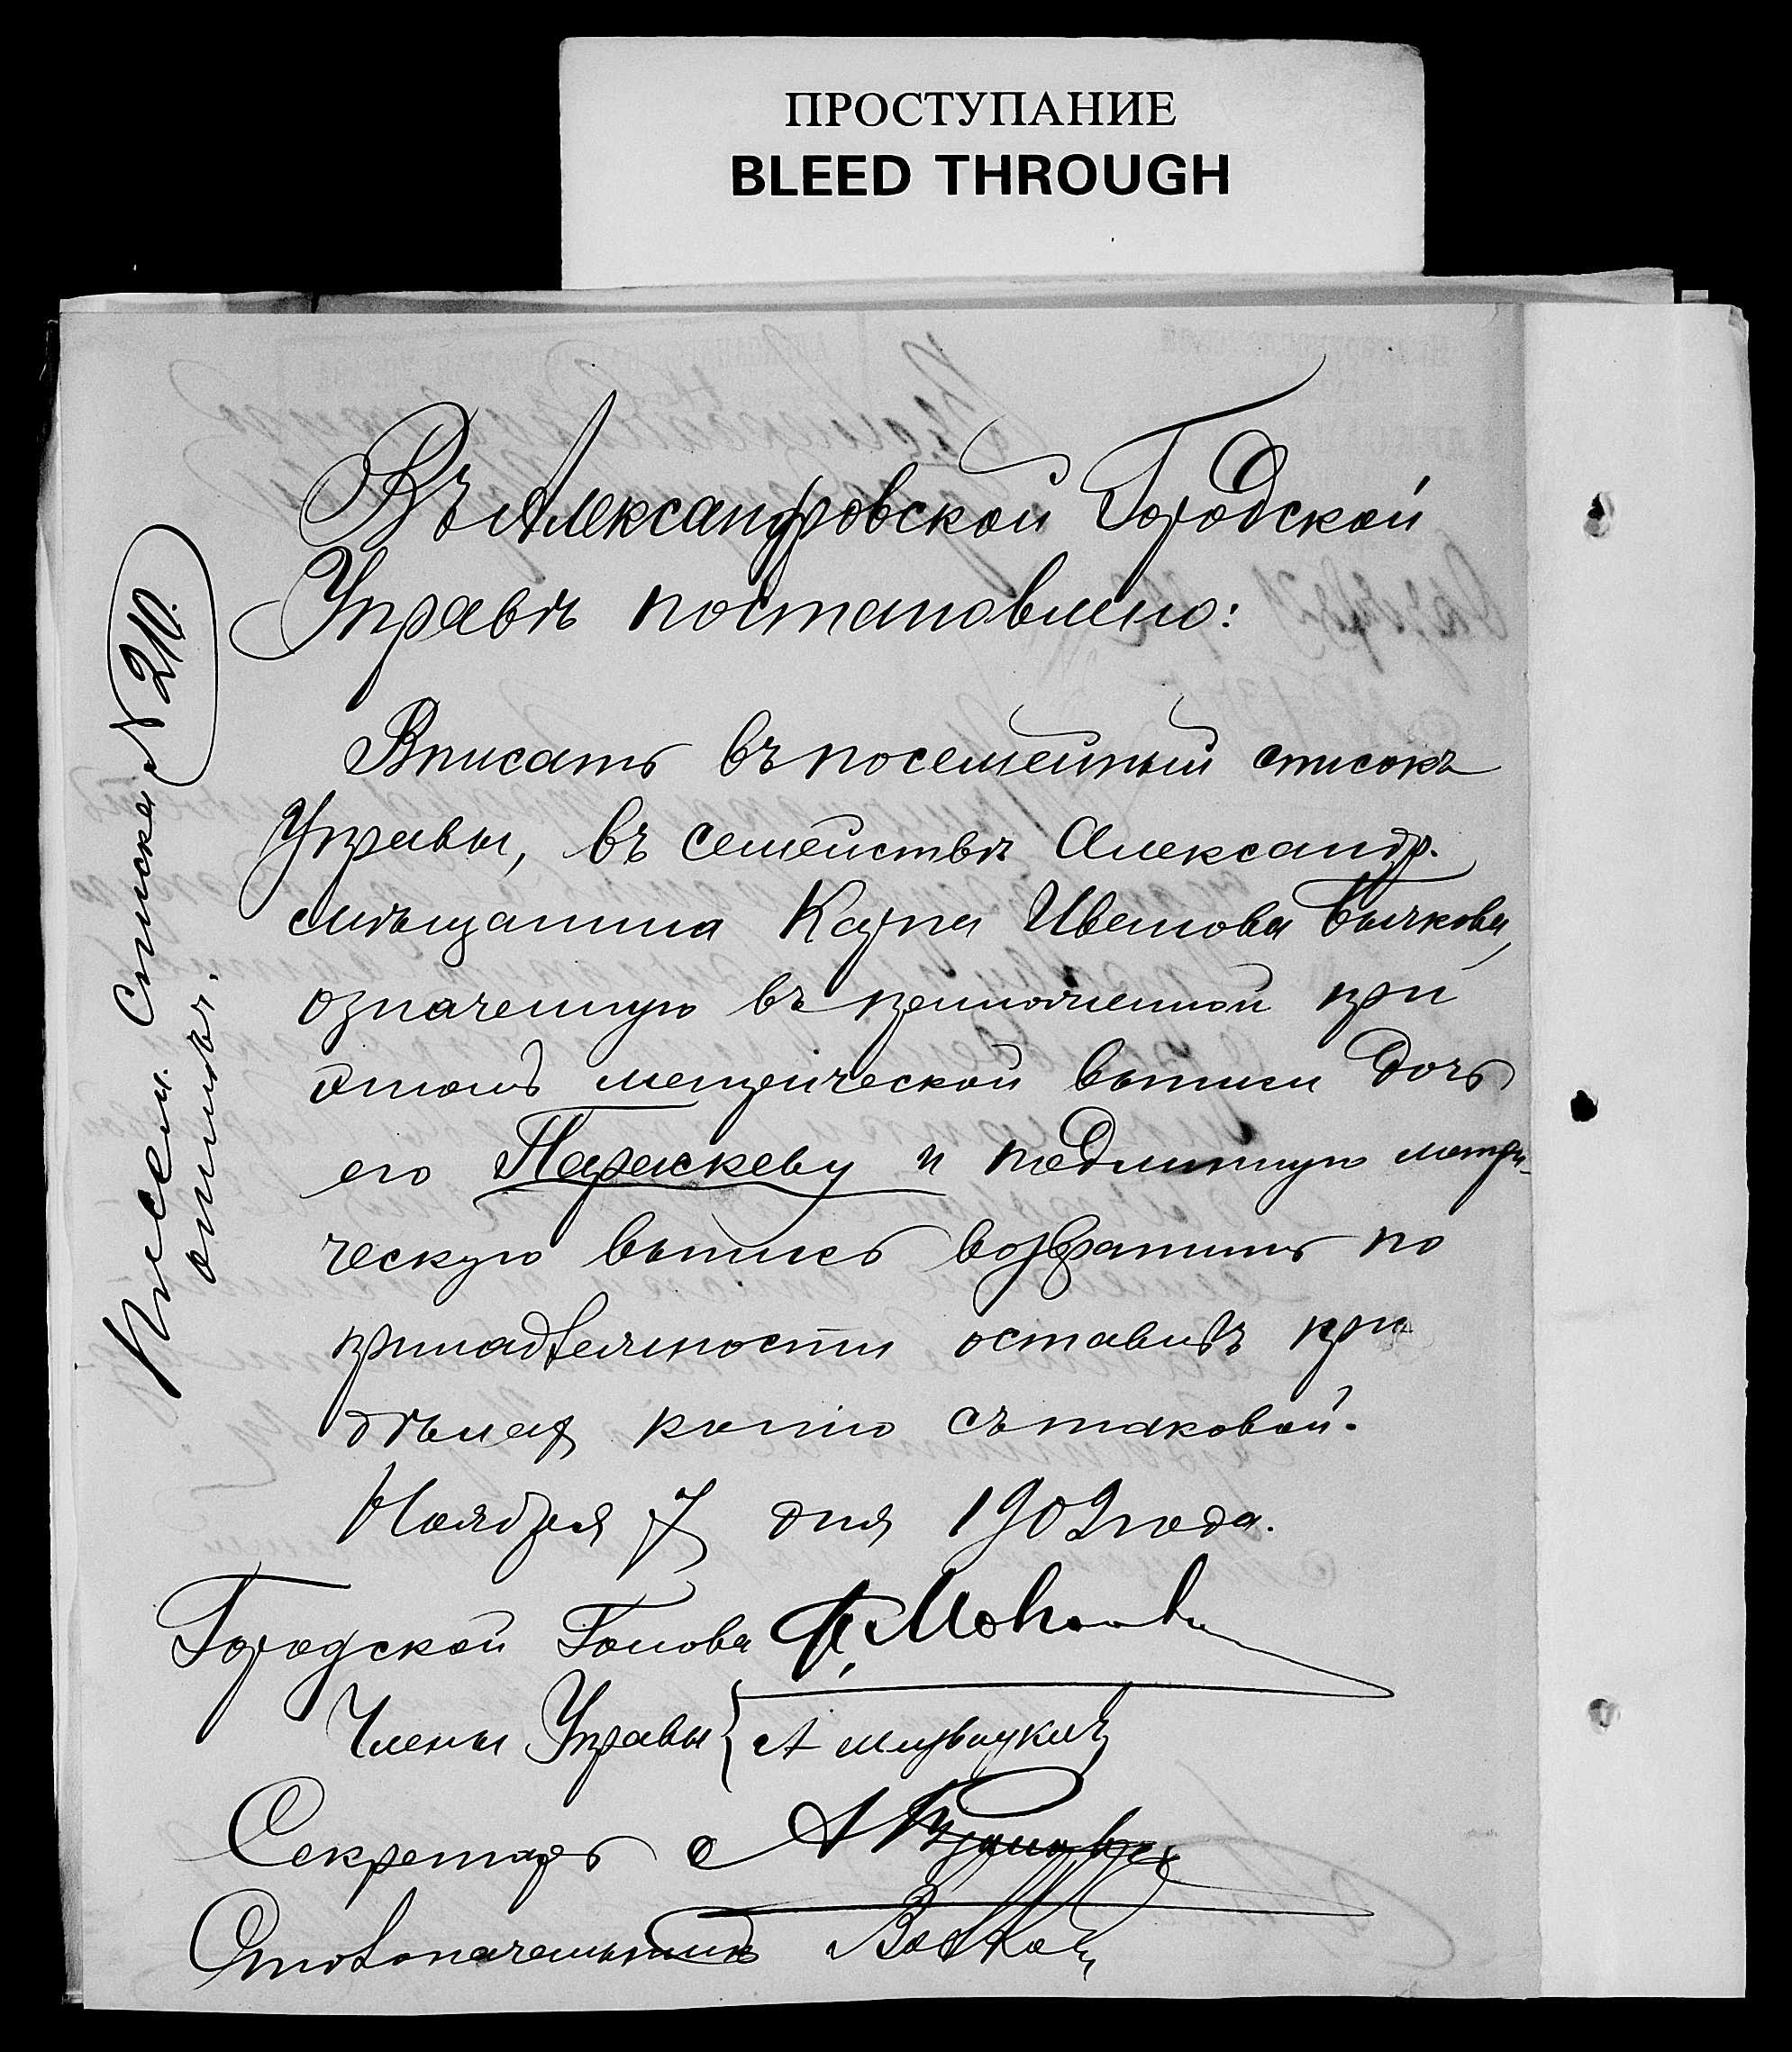 ПРОСТУПАНИЕ
BLEED THROUGH
Въ Александровской Городской
Управѣ постановлено:
Вписать въ посемейный списокъ
Управы, въ семействѣ Александр.
мѣщанина Карпа Иванова Бычкова,
означенную въ приложенной при
этомъ метрической выписи дочь
его Параскеву и подлинную метри-
ческую выпись возвратить по
принадлежности оставивъ при
дѣлах копію съ таковой.
Ноября 7 дня 1902 года.
Городской Голова Ф.
Члены Управы А
Секретарь А
Столоначальникъ
Писем. Списка № 210.